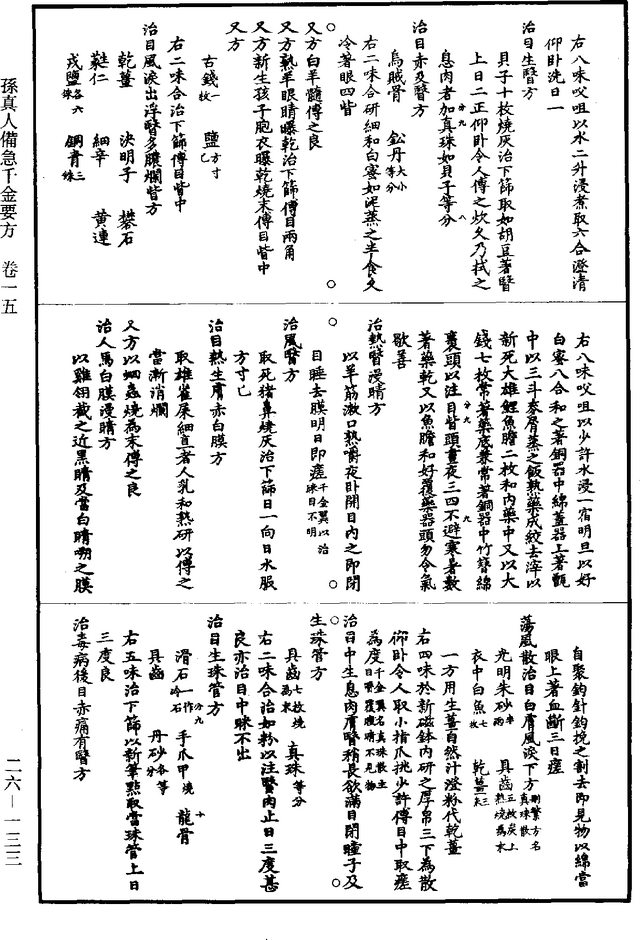 孫真人備急千金要方　卷一五
右八味㕮咀以水二升浸煮取六合澄清
仰卧洗日一
治目生翳方
貝子十枚燒灰治下篩取如胡豆著翳
上日二正仰卧令人傅之炊久乃拭之
息肉者加真珠如貝子等分
治目赤及翳方
烏賊骨　鈆丹大小等分
右二味合研細和白蜜如泥蒸之半食久
冷著眼四眥
又方白羊髓傅之良
又方熟羊眼睛曝乾治下篩傅目兩角
又方新生孩子胞衣曝乾燒末傅目眥中
又方
古錢一枚　鹽方寸匕
右二味合治下篩傅目眥中
治目風淚出浮翳多膿爛眥方
乾薑　決明子　礬石
蕤仁　細辛　黃連
戎鹽各六銖　銅青三銖
右八味㕮咀以少許水浸一宿明旦以好
白蜜八合和之著銅器中綿蓋器上著甑
中以三斗麥屑蒸之飯熟藥成絞去滓以
新死大雄鯉魚膽二枚和內藥中又以大
錢七枚常著藥底兼常著銅器中竹簪綿
裹頭以注目眥頭晝夜三四不避寒暑數
著藥乾又以魚膽和好覆藥器頭勿令氣
歇善
治熱翳漫睛方
以羊筋漱口熟嚼夜卧開目內之即閉
目睡去膜明日即瘥千金翼以治眯目不明
治風翳方
取死猪鼻燒灰治下篩日一向日水服
方寸匕
治目熱生膚赤白膜方
取雄雀屎細直者人乳和熟研以傅之
當漸消爛
又方以蛔蟲燒為末傅之良
治人馬白膜漫睛方
以雞翎截之近黑睛及當白睛嗍之膜
自聚鈎針鈎挽之割去即見物以綿當
眼上著血斷三日瘥
蕩風散治目白膚風淚下方刪繁方名真珠散
光明朱砂半兩　貝齒五枚炭上熟燒為末
衣中白魚七枚　乾薑三朱
一方用生薑自然汁澄粉代乾薑
右四味於新磁鉢內研之厚帛三下為散
仰卧令人取小指爪挑少許傅目中取瘥
為度千金翼名真珠散主目翳覆瞳睛不見物
治目中生息肉膚翳稍長欲滿目閉瞳子及
生珠管方
貝齒七枚燒為末　真珠等分
右二味合治如粉以注翳肉止日三度甚
良亦治目中眯不出
治目生珠管方
滑石一作冷石　手爪甲燒　龍骨
貝齒　丹砂各等分
右五味治下篩以新筆點取當珠管上日
三度良
治毒病後目赤痛有翳方
二六—一三三